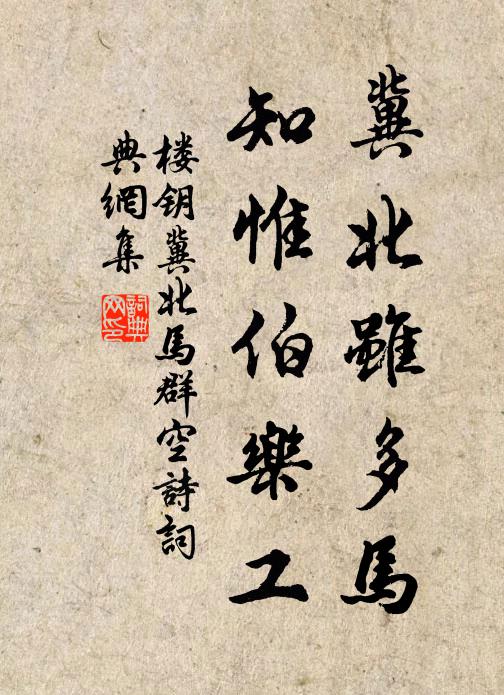 冀北雖多馬
知惟伯樂工
楼钥冀北馬群空詩詞
典網集
詞典
网印